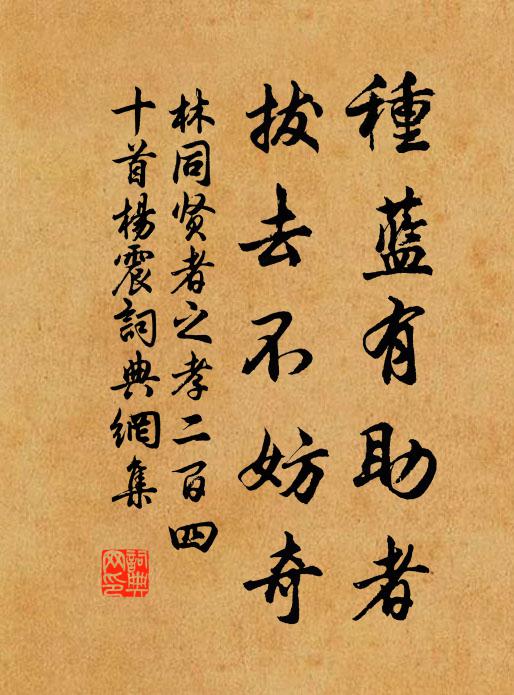 種藍有助者
拔去不妨奇
林同贤者之孝二百四
十首楊震詞典網集
詞典
网印